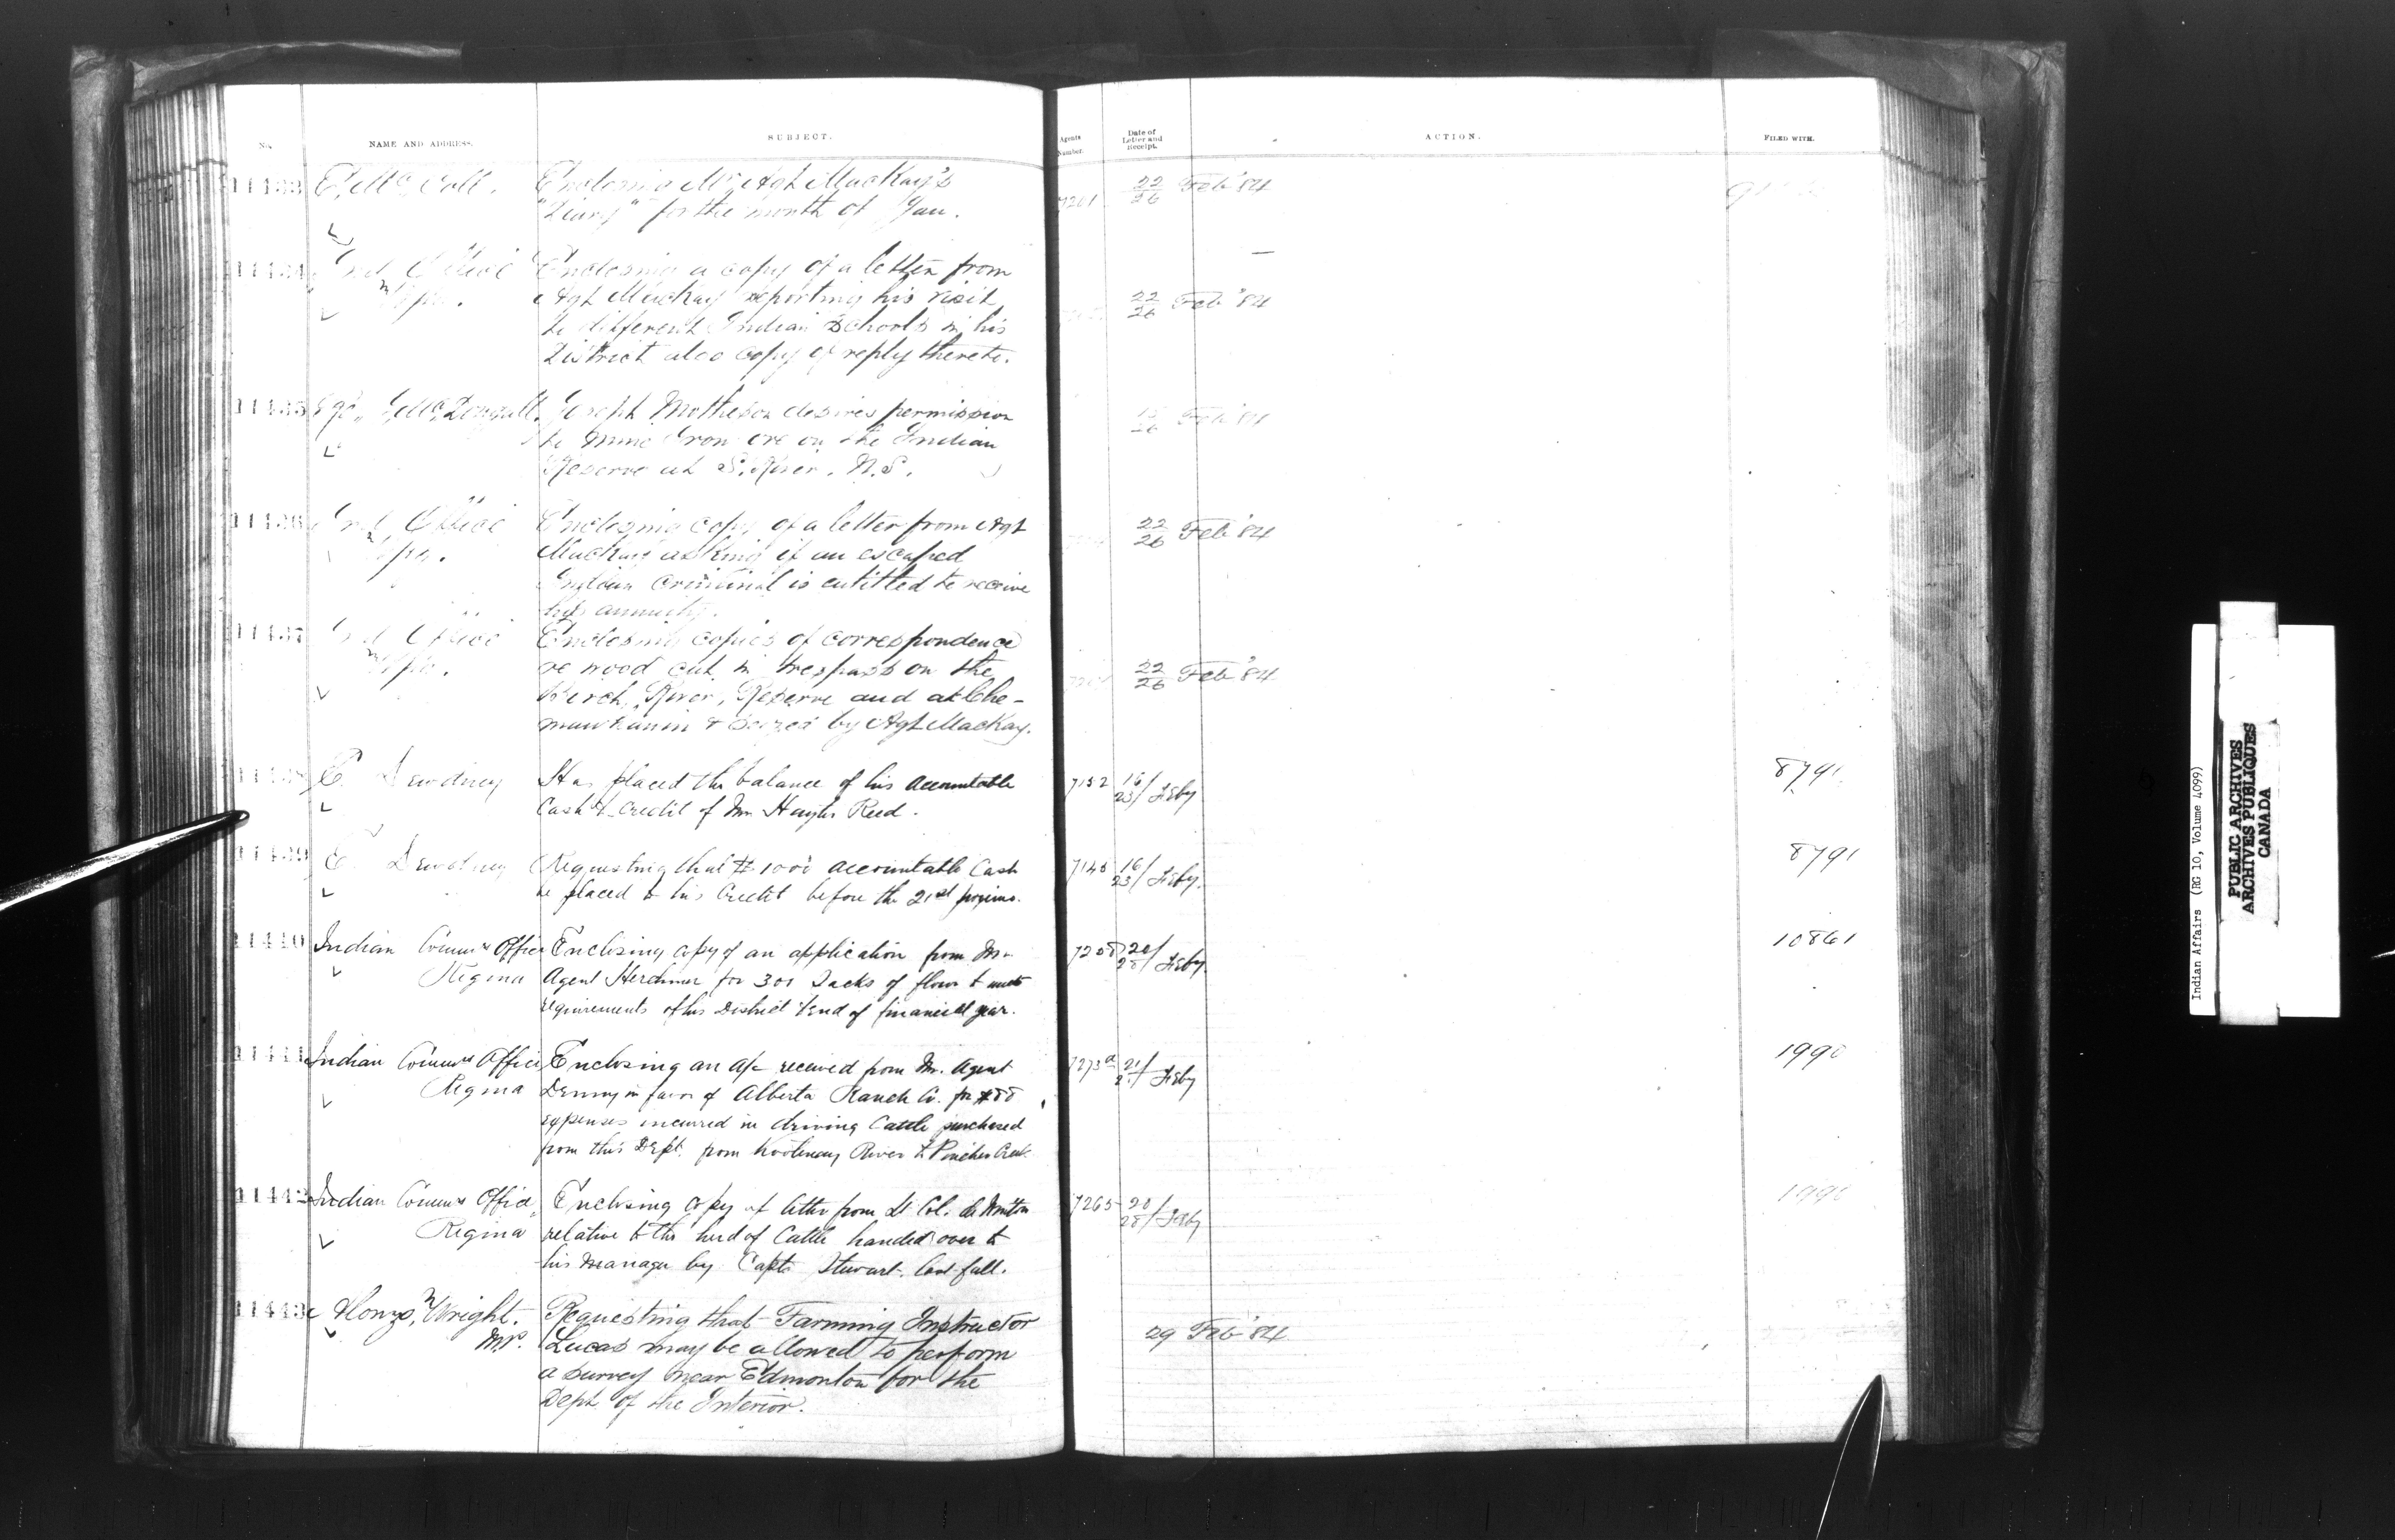 No.
NAME AND ADDRESS.
SUBJECT.
Agents Number.
Date of Letter and Receipt.
ACTION.
FILED WITH.
11433 E. McColl. Enclosing Mr Agt MacKay's
"Diary" for the month of Jan. 22/26 Feb '84
11434 Ind Office Enclosing a copy of a letter from
Wpg. Agt MacKay reporting his visit 22/26 Feb '84
to different Indian Schools in his
District also copy of reply thereto.
11435 McDougall. Joseph Matheson desires permission Feb '84
to mine Iron ore on the Indian
Reserve at S. River, N.S.
11436 Ind Office Enclosing copy of a letter from Agt 22/26 Feb '84
Wpg. MacKay asking if an escaped
Indian Criminal is entitled to receive
his annuity.
11437 Ind Office Enclosing copies of correspondence
Wpg. re wood cut in trespass on the 22/26 Feb '84
Birch River, Reserve and at Che-
mawhawin & seized by Agt MacKay.
11438 E. Dewdney Has placed the balance of his accountable 7152 16/23/ Feby 8791
Cash to credit of Mr Hayter Reed.
11439 E Dewdney Requesting that $1000 accountable Cash 16/23/ Feby. 8791
be placed to his Credit before the 21st proximo.
11440 Indian Commrs Office Enclosing copy of an application from Mr 20/ Feby 10861
Regina Agent Herchmer for 300 Sacks of flour to meet
requirements of his District to end of financial year.
11441 Indian Commrs Office Enclosing an a/c received from Mr. Agent 7273a 21/ Feby 1990
Regina Denny in favor of Alberta Ranch Co. for
expenses incurred in driving Cattle purchased
from this Dept. from Kootenay River to Pincher Creek
11442 Indian Commrs Office, Enclosing copy of letter from Lt Col. de Winton 7265 20/28/ Feby 1990
Regina relative to the herd of Cattle handed over to
his Manager by Capt. Stewart last fall.
11443 Alonzo Wright. Requesting that Farming Instructor
M.P. Lucas may be allowed to perform 29 Feb '84
a survey near Edmonton for the
Dept of the Interior.
Indian Affairs (RG 10, Volume 4099)
PUBLIC ARCHIVES
ARCHIVES PUBLIQUES
CANADA